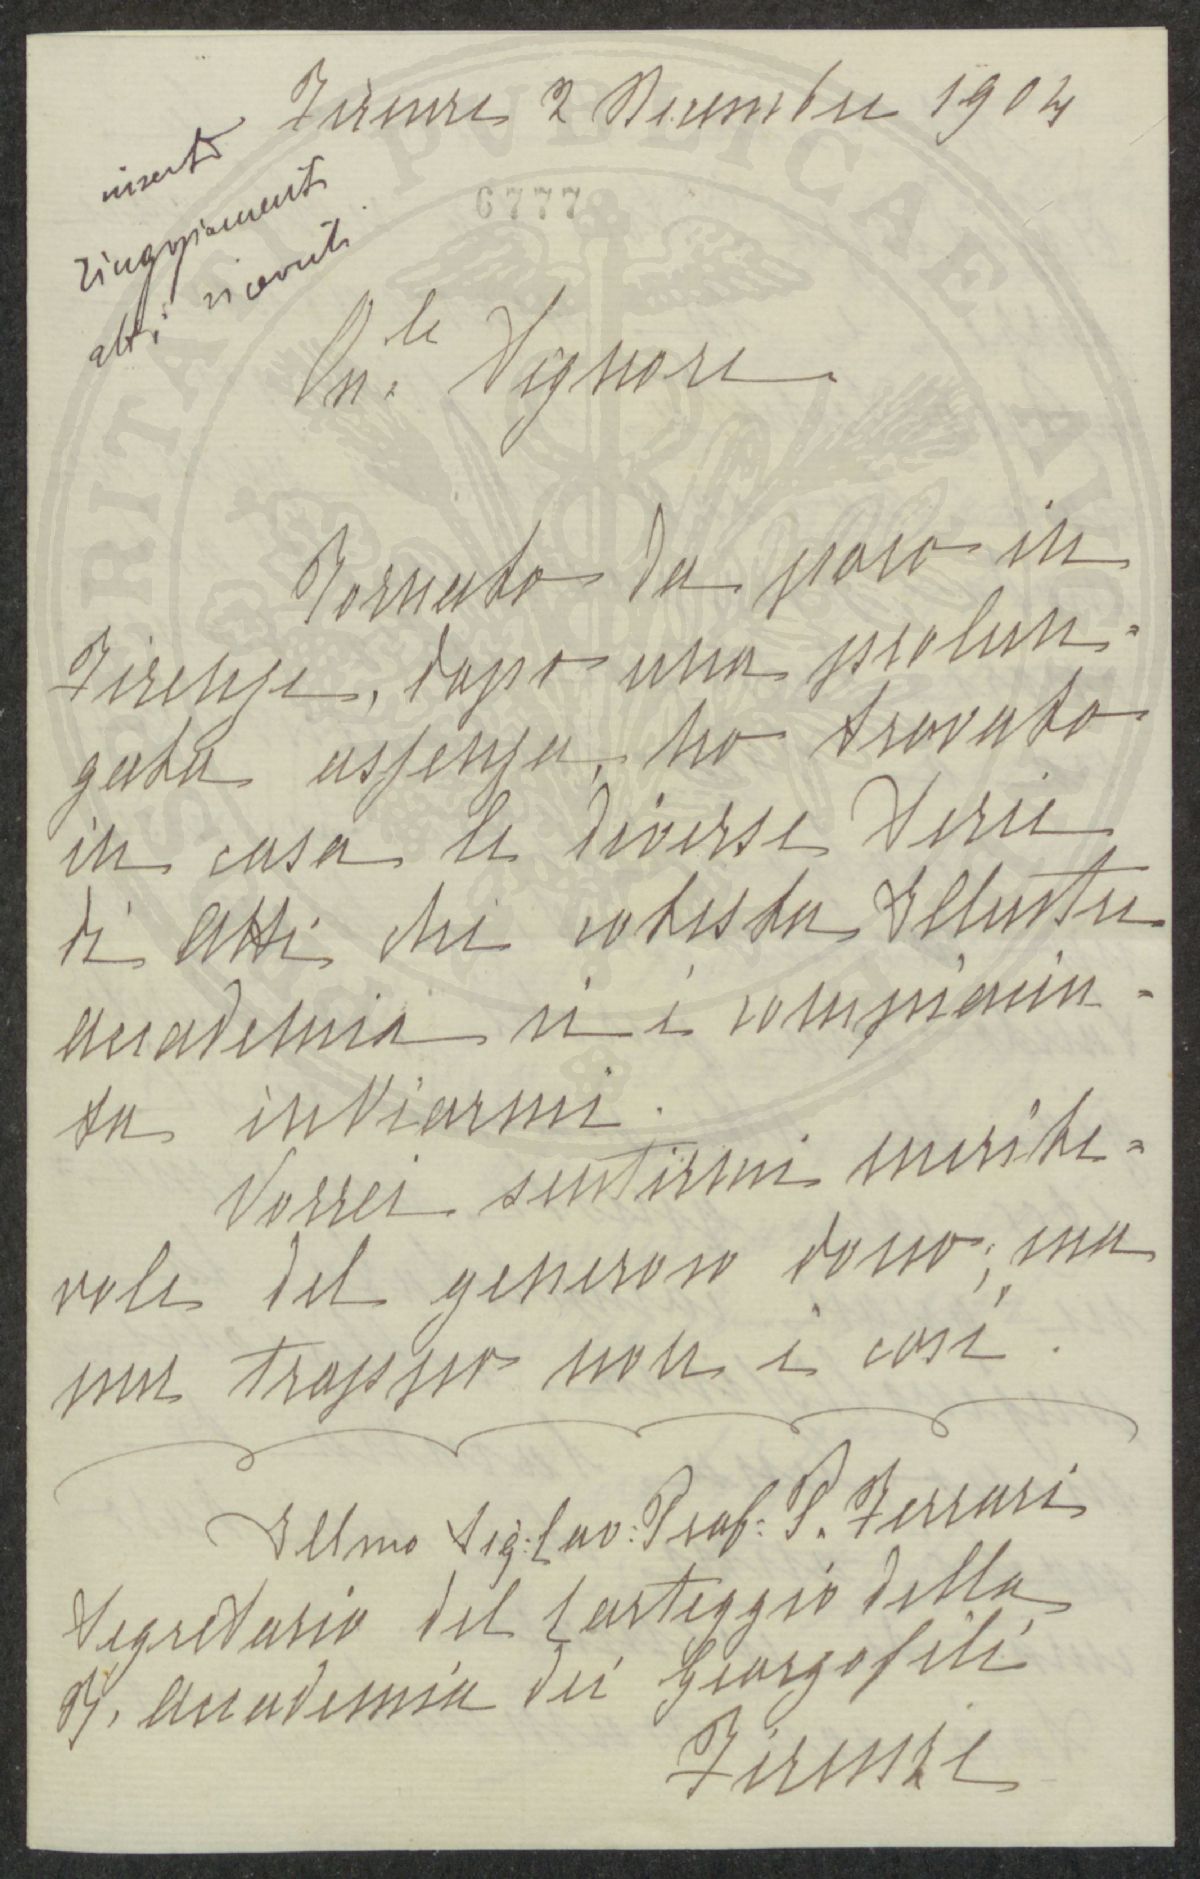 Firenze 2 Decembre 1904
inserto
ringraziamenti
atti ricevuti
6777
On.le Signore
Tornato da poco in
Firenze, dopo una prolun-
gata assenza, ho trovato
in casa le diverse Serie
di Atti che cotesta Illustre
Accademia si è compiacin-
ta inviarmi.
Vorrei sentirmi merite-
vole del generoso dono; ma
pur troppo non è così.
Illmo Sig: Cav: Prof: P. Ferrari
Segretario del Carteggio della
R. Accademia dei Georgofili
Firenze
PUBLICAE